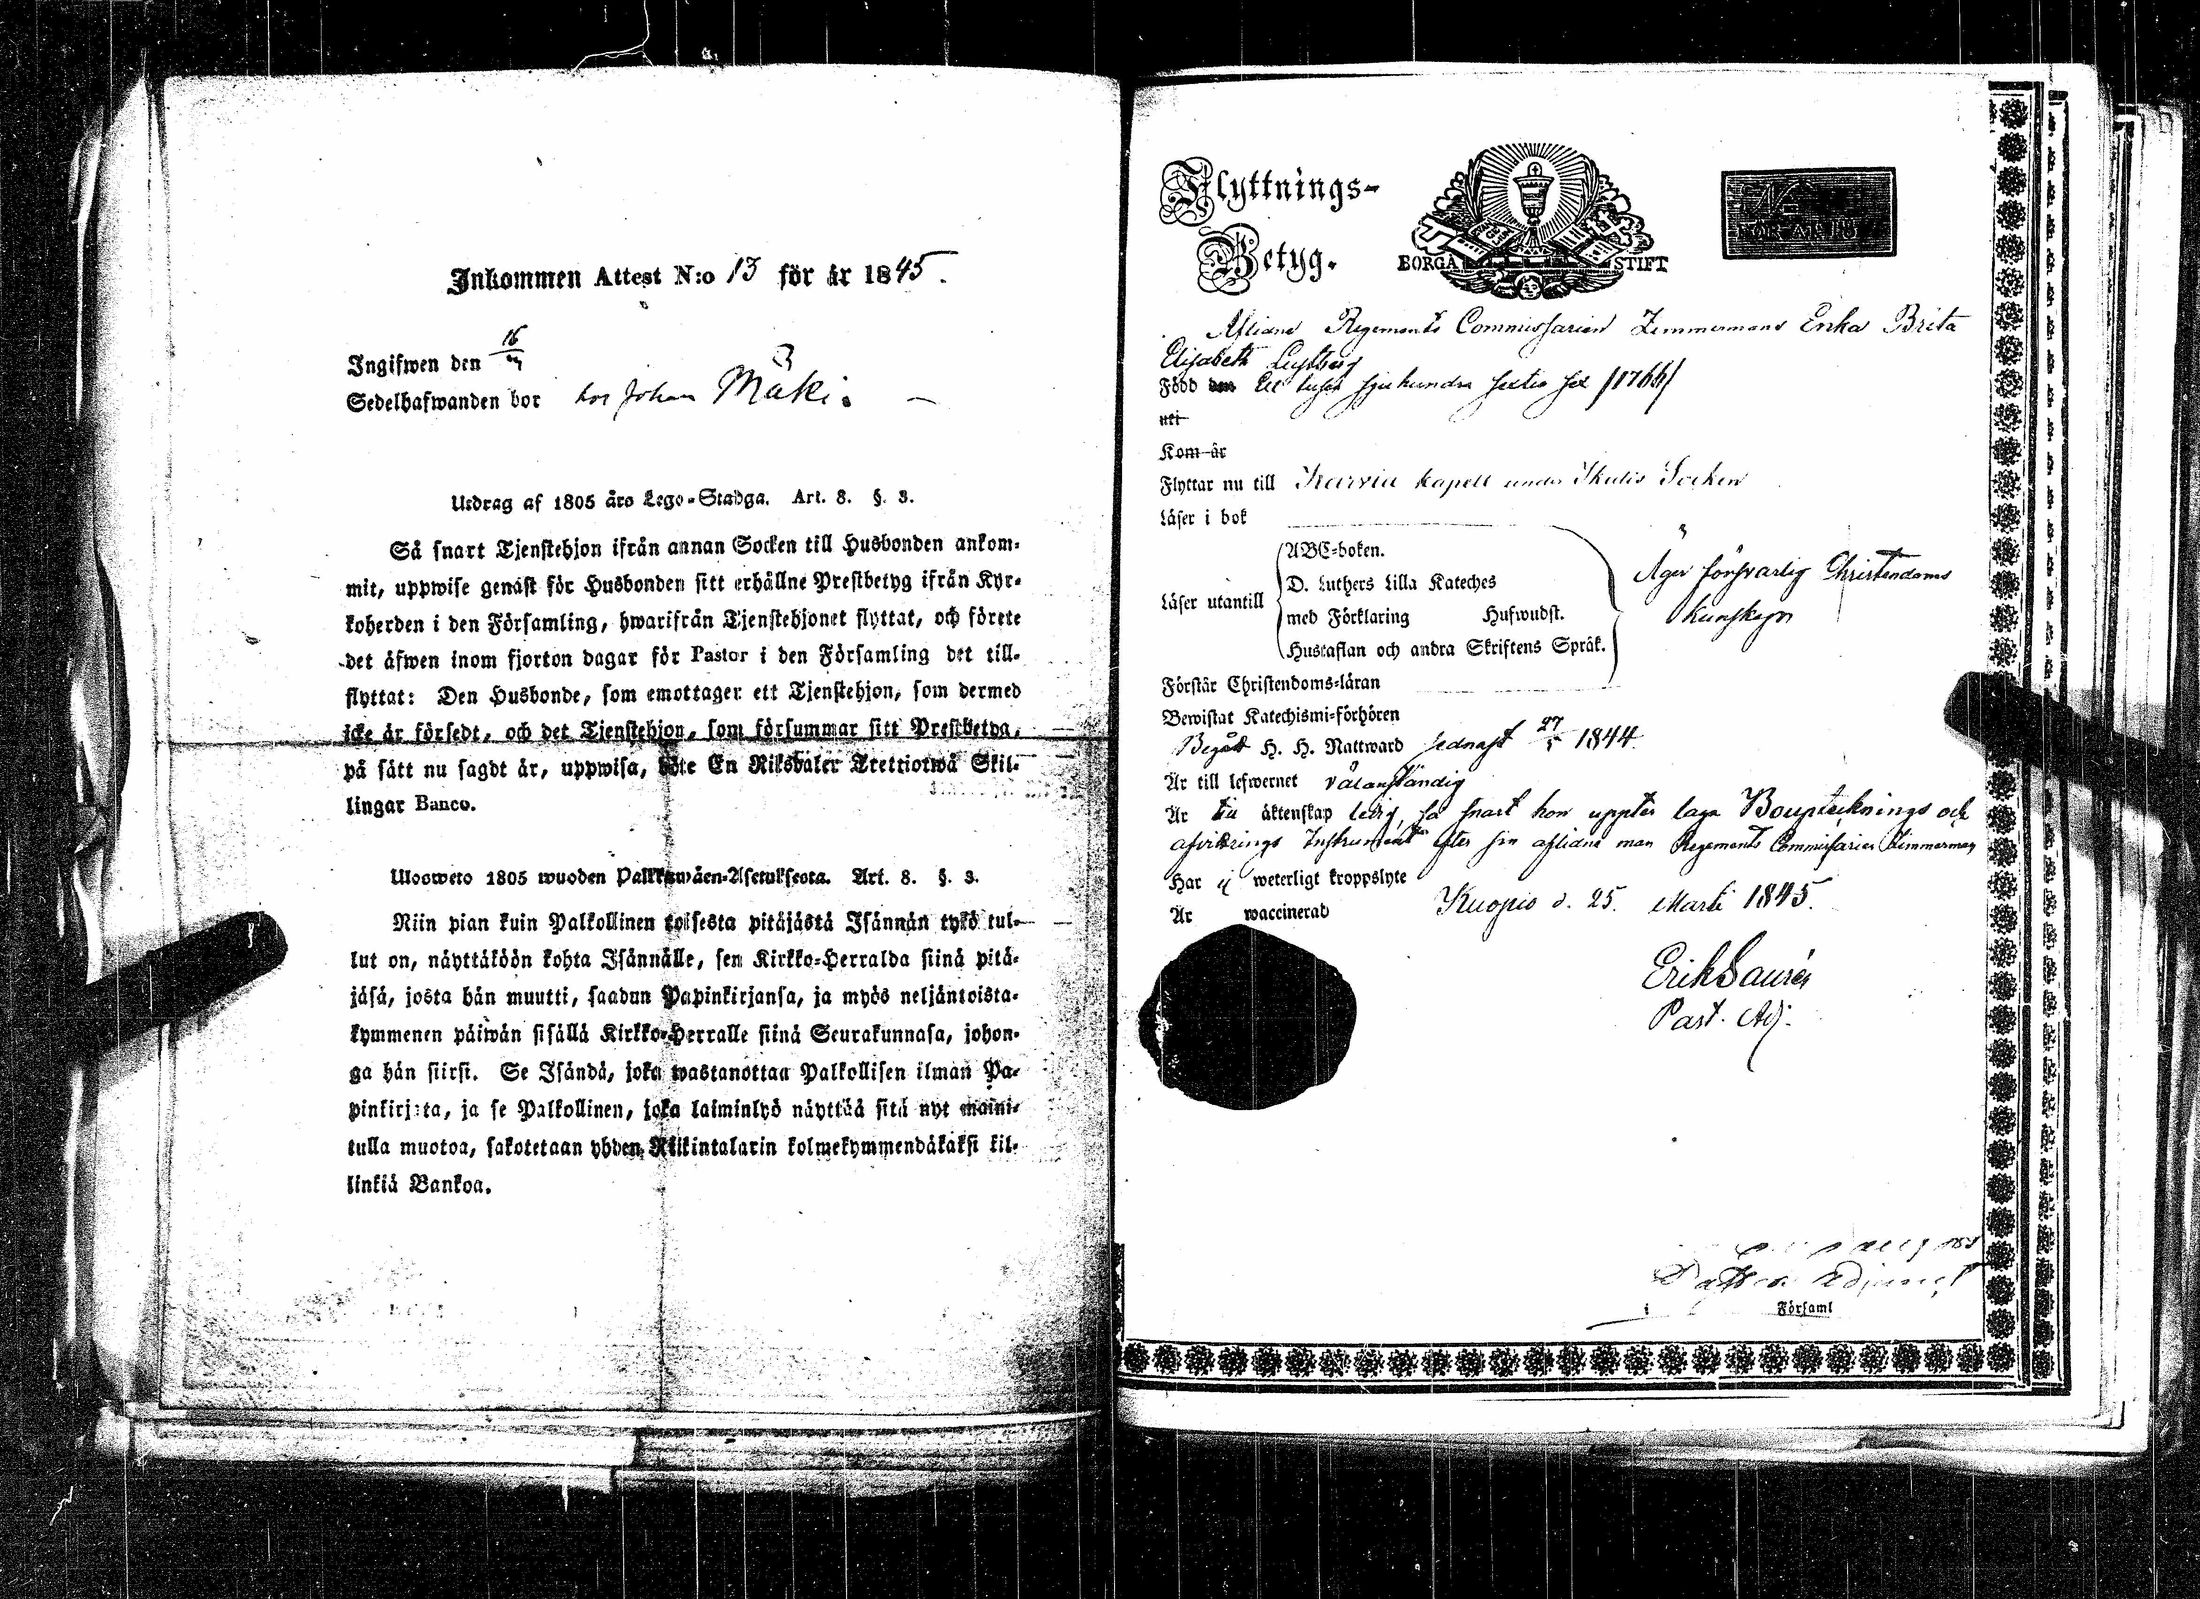 Inkommen Attest N:o 13 för år 1845.
Ingifwen den 16
Sedelhafwanden bor hos Johan Mäki.
Utdrag af 1805 års Lego-Stadga. Art. 8. §. 3.
Så snart Tjenstehjon ifrån annan Socken till Husbonden ankom-
mit, uppwise genast för Husbonden sitt erhållne Prestbetyg ifrån Kyr-
koherden i den Församling, hwarifrån Tjenstehjonet flyttat, och förete
det äfwen inom fjorton dagar för Pastor i den Församling det till-
flyttat: Den Husbonde, som emottager ett Tjenstehjon, som dermed
icke är försedt, och det Tjenstehjon, som försummar sitt Prestbetyg,
på sätt nu sagdt är, uppwisa, böte En Riksdaler Trettiotwå Skil-
lingar Banco.
Ulosweto 1805 wuoden Palkkawäen-Asetuksesta. Art. 8. §. 3.
Niin pian kuin Palkollinen toisesta pitäjästä Isännän tykö tul-
lut on, näyttäköön kohta Isännälle, sen Kirkko-Herralda siinä pitä-
jäsä, josta hän muutti, saadun Papinkirjansa, ja myös neljäntoista-
kymmenen päiwän sisällä Kirkko-Herralle siinä Seurakunnasa, johon-
ga hän siirsi. Se Isändä, joka wastanottaa Palkollisen ilman Pa-
pinkirjata, ja se Palkollinen, joka laiminlyö näyttää sitä nyt maini-
tulla muotoa, sakotetaan yhden Riikintalarin kolmekymmendäkaksi kil-
linkiä Bankoa.
Flyttnings-
Betyg.
BORGÅ STIFT
FÖR ÅR 18
Aflidne Regements Commissarien Zimmermans Enka Brita
Elisabeth
Född den Ett tusen sjuhundra sextio sex /1766/
uti
Kom år
Flyttar nu till Karvia kapell under Ikalis Socken
Läser i bok
Läser utantill
ABC-boken.
D. Luthers Lilla Kateches
med Förklaring Hufwudst.
Hustaflan och andra Skriftens Språk.
Äger försvarlig Christendoms
kunskap
Förstår Christendoms-läran
Bewistat Katechismi-förhören
Begått H. H. Nattward sednast 27/5 1844
Är till lefwernet välanständig
Är till äktenskap ledig, så snart hon uppter laga Bouptecknings och
afvittrings Instrument efter sin aflidne man Regements Commissarien Zimmerman
Har ej weterligt kroppslyte
Är waccinerad
Kuopio d. 25. Marti 1845.
Erik Saurén
Past. Adj.
i Församl